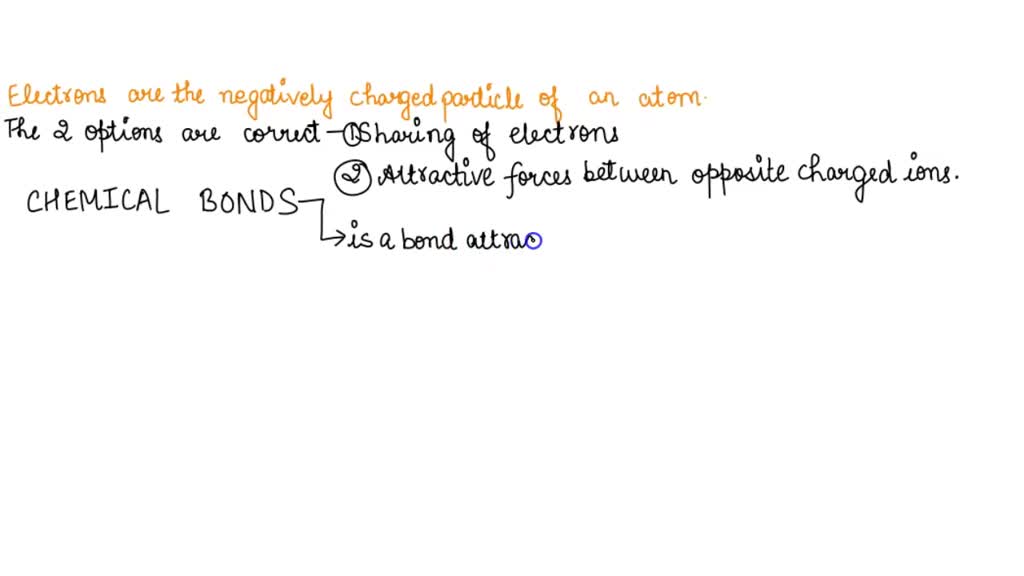 Electrons are the negatively charged particle of an atom.
The 2 options are correct - ① Sharing of electrons
② Attractive forces between opposite charged ions.
CHEMICAL BONDS
→ is a bond attrac